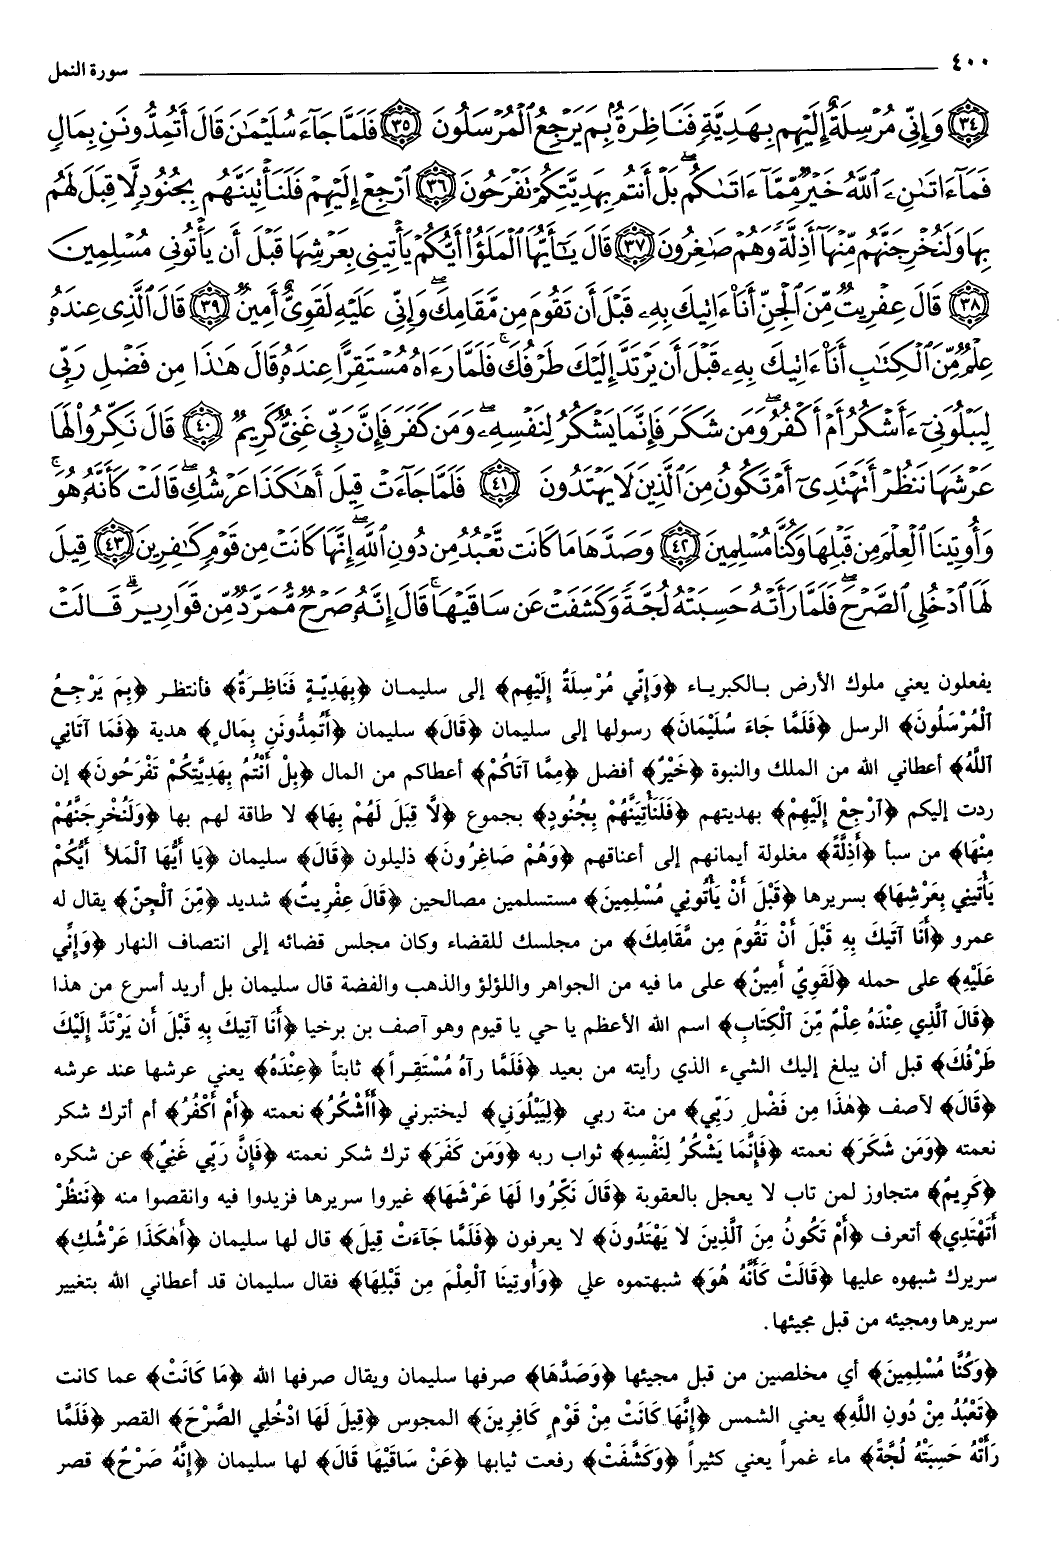 ٤٠٠ سورة النمل
﴿٣٤﴾ وَإِنِّي مُرْسِلَةٌ إِلَيْهِم بِهَدِيَّةٍ فَنَاظِرَةٌۢ بِمَ يَرْجِعُ ٱلْمُرْسَلُونَ ﴿٣٥﴾ فَلَمَّا جَآءَ سُلَيْمَٰنَ قَالَ أَتُمِدُّونَنِ بِمَالٍ
فَمَآ ءَاتَىٰنِۦَ ٱللَّهُ خَيْرٌ مِّمَّآ ءَاتَىٰكُم بَلْ أَنتُم بِهَدِيَّتِكُمْ تَفْرَحُونَ ﴿٣٦﴾ ٱرْجِعْ إِلَيْهِمْ فَلَنَأْتِيَنَّهُم بِجُنُودٍ لَّا قِبَلَ لَهُم
بِهَا وَلَنُخْرِجَنَّهُم مِّنْهَآ أَذِلَّةً وَهُمْ صَٰغِرُونَ ﴿٣٧﴾ قَالَ يَٰٓأَيُّهَا ٱلْمَلَؤُا۟ أَيُّكُمْ يَأْتِينِي بِعَرْشِهَا قَبْلَ أَن يَأْتُونِي مُسْلِمِينَ
﴿٣٨﴾ قَالَ عِفْرِيتٌ مِّنَ ٱلْجِنِّ أَنَا۠ ءَاتِيكَ بِهِۦ قَبْلَ أَن تَقُومَ مِن مَّقَامِكَ ۖ وَإِنِّي عَلَيْهِ لَقَوِيٌّ أَمِينٌ ﴿٣٩﴾ قَالَ ٱلَّذِي عِندَهُۥ
عِلْمٌ مِّنَ ٱلْكِتَٰبِ أَنَا۠ ءَاتِيكَ بِهِۦ قَبْلَ أَن يَرْتَدَّ إِلَيْكَ طَرْفُكَ ۚ فَلَمَّا رَءَاهُ مُسْتَقِرًّا عِندَهُۥ قَالَ هَٰذَا مِن فَضْلِ رَبِّي
لِيَبْلُوَنِيٓ ءَأَشْكُرُ أَمْ أَكْفُرُ ۖ وَمَن شَكَرَ فَإِنَّمَا يَشْكُرُ لِنَفْسِهِۦ ۖ وَمَن كَفَرَ فَإِنَّ رَبِّي غَنِيٌّ كَرِيمٌ ﴿٤٠﴾ قَالَ نَكِّرُوا۟ لَهَا
عَرْشَهَا نَنظُرْ أَتَهْتَدِيٓ أَمْ تَكُونُ مِنَ ٱلَّذِينَ لَا يَهْتَدُونَ ﴿٤١﴾ فَلَمَّا جَآءَتْ قِيلَ أَهَٰكَذَا عَرْشُكِ ۖ قَالَتْ كَأَنَّهُۥ هُوَ ۚ
وَأُوتِينَا ٱلْعِلْمَ مِن قَبْلِهَا وَكُنَّا مُسْلِمِينَ ﴿٤٢﴾ وَصَدَّهَا مَا كَانَت تَّعْبُدُ مِن دُونِ ٱللَّهِ ۖ إِنَّهَا كَانَتْ مِن قَوْمٍ كَٰفِرِينَ ﴿٤٣﴾ قِيلَ
لَهَا ٱدْخُلِي ٱلصَّرْحَ ۖ فَلَمَّا رَأَتْهُ حَسِبَتْهُ لُجَّةً وَكَشَفَتْ عَن سَاقَيْهَا ۚ قَالَ إِنَّهُۥ صَرْحٌ مُّمَرَّدٌ مِّن قَوَارِيرَ ۗ قَالَتْ
يفعلون يعني ملوك الأرض بالكبرياء ﴿وَإِنِّي مُرْسِلَةٌ إِلَيْهِم﴾ إلى سليمان ﴿بِهَدِيَّةٍ فَنَاظِرَةٌ﴾ فأنتظر ﴿بِمَ يَرْجِعُ
ٱلْمُرْسَلُونَ﴾ الرسل ﴿فَلَمَّا جَاءَ سُلَيْمَانَ﴾ رسولها إلى سليمان ﴿قَالَ﴾ سليمان ﴿أَتُمِدُّونَنِ بِمَالٍ﴾ هدية ﴿فَمَا آتَانِي
ٱللَّهُ﴾ أعطاني الله من الملك والنبوة ﴿خَيْرٌ﴾ أفضل ﴿مِمَّا آتَاكُمْ﴾ أعطاكم من المال ﴿بِلْ أَنْتُمْ بِهَدِيَّتِكُمْ تَفْرَحُونَ﴾ إن
ردت إليكم ﴿ٱرْجِعْ إِلَيْهِمْ﴾ بهديتهم ﴿فَلَنَأْتِيَنَّهُمْ بِجُنُودٍ﴾ بجموع ﴿لَّا قِبَلَ لَهُمْ بِهَا﴾ لا طاقة لهم بها ﴿وَلَنُخْرِجَنَّهُمْ
مِنْهَا﴾ من سبأ ﴿أَذِلَّةً﴾ مغلولة أيمانهم إلى أعناقهم ﴿وَهُمْ صَاغِرُونَ﴾ ذليلون ﴿قَالَ﴾ سليمان ﴿يَا أَيُّهَا ٱلْمَلأُ أَيُّكُمْ
يَأْتِينِي بِعَرْشِهَا﴾ بسريرها ﴿قَبْلَ أَنْ يَأْتُونِي مُسْلِمِينَ﴾ مستسلمين مصالحين ﴿قَالَ عِفْرِيتٌ﴾ شديد ﴿مِّنَ ٱلْجِنِّ﴾ يقال له
عمرو ﴿أَنَا آتِيكَ بِهِ قَبْلَ أَنْ تَقُومَ مِن مَّقَامِكَ﴾ من مجلسك للقضاء وكان مجلس قضائه إلى انتصاف النهار ﴿وَإِنِّي
عَلَيْهِ﴾ على حمله ﴿لَقَوِيٌّ أَمِينٌ﴾ على ما فيه من الجواهر واللؤلؤ والذهب والفضة قال سليمان بل أريد أسرع من هذا
﴿قَالَ ٱلَّذِي عِنْدَهُ عِلْمٌ مِّنَ ٱلْكِتَابِ﴾ اسم الله الأعظم يا حي يا قيوم وهو آصف بن برخيا ﴿أَنَا آتِيكَ بِهِ قَبْلَ أَن يَرْتَدَّ إِلَيْكَ
طَرْفُكَ﴾ قبل أن يبلغ إليك الشيء الذي رأيته من بعيد ﴿فَلَمَّا رَآهُ مُسْتَقِراً﴾ ثابتاً ﴿عِنْدَهُ﴾ يعني عرشها عند عرشه
﴿قَالَ﴾ لآصف ﴿هٰذَا مِن فَضْلِ رَبِّي﴾ من منة ربي ﴿لِيَبْلُوَنِي﴾ ليختبرني ﴿أَأَشْكُرُ﴾ نعمته ﴿أَمْ أَكْفُرُ﴾ أم أترك شكر
نعمته ﴿وَمَن شَكَرَ﴾ نعمته ﴿فَإِنَّمَا يَشْكُرُ لِنَفْسِهِ﴾ ثواب ربه ﴿وَمَن كَفَرَ﴾ ترك شكر نعمته ﴿فَإِنَّ رَبِّي غَنِيٌّ﴾ عن شكره
﴿كَرِيمٌ﴾ متجاوز لمن تاب لا يعجل بالعقوبة ﴿قَالَ نَكِّرُوا لَهَا عَرْشَهَا﴾ غيروا سريرها فزيدوا فيه وانقصوا منه ﴿نَنظُرْ
أَتَهْتَدِي﴾ أتعرف ﴿أَمْ تَكُونُ مِنَ ٱلَّذِينَ لا يَهْتَدُونَ﴾ لا يعرفون ﴿فَلَمَّا جَآءَتْ قِيلَ﴾ قال لها سليمان ﴿أَهٰكَذَا عَرْشُكِ﴾
سريرك شبهوه عليها ﴿قَالَتْ كَأَنَّهُ هُوَ﴾ شبهتموه علي ﴿وَأُوتِينَا ٱلْعِلْمَ مِن قَبْلِهَا﴾ فقال سليمان قد أعطاني الله بتغيير
سريرها ومجيئه من قبل مجيئها.
﴿وَكُنَّا مُسْلِمِينَ﴾ أي مخلصين من قبل مجيئها ﴿وَصَدَّهَا﴾ صرفها سليمان ويقال صرفها الله ﴿مَا كَانَتْ﴾ عما كانت
﴿تَعْبُدُ مِنْ دُونِ اللَّهِ﴾ يعني الشمس ﴿إِنَّهَا كَانَتْ مِنْ قَوْمٍ كَافِرِينَ﴾ المجوس ﴿قِيلَ لَهَا ادْخُلِي الصَّرْحَ﴾ القصر ﴿فَلَمَّا
رَأَتْهُ حَسِبَتْهُ لُجَّةً﴾ ماء غمراً يعني كثيراً ﴿وَكَشَفَتْ﴾ رفعت ثيابها ﴿عَنْ سَاقَيْهَا قَالَ﴾ لها سليمان ﴿إِنَّهُ صَرْحٌ﴾ قصر